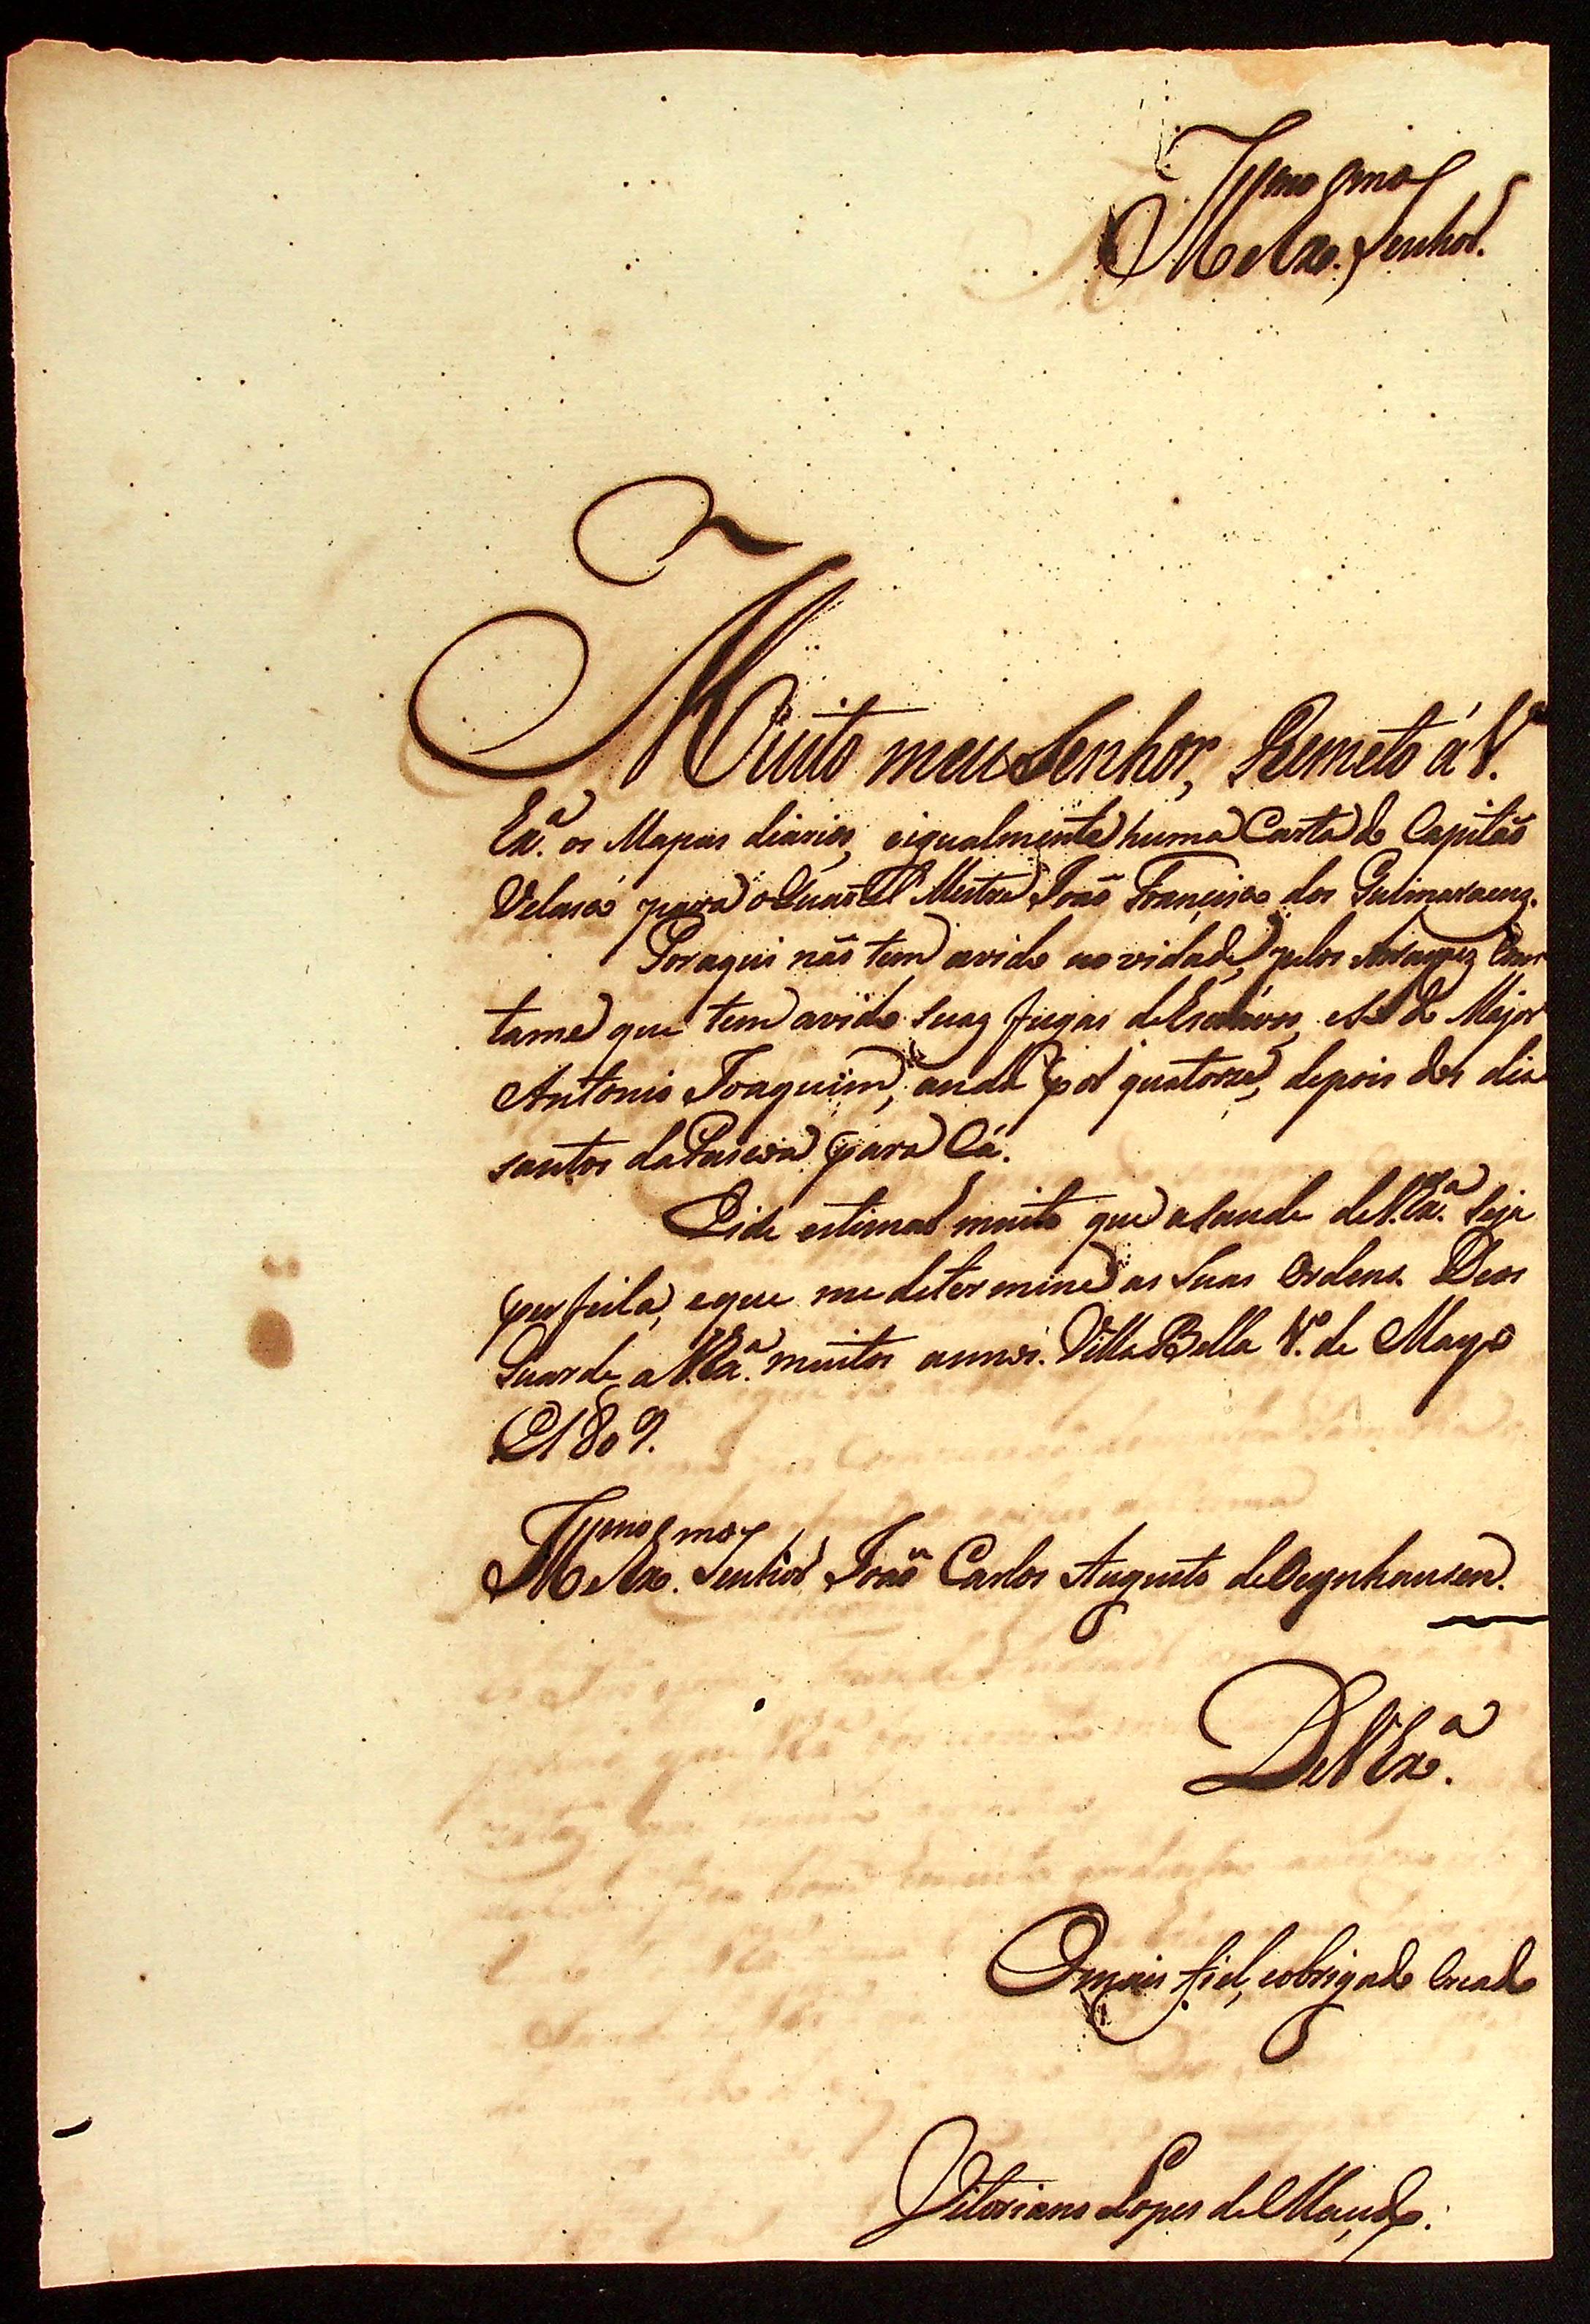 Illmo Exmo
Senhor.
Muito meu Senhor, Remeto á V.
Exª. os Mapas diarios, eigualmente huma Carta do Capitão
Velasco para o Quartel Mestre João Francisco dos Guimaraens.
Por aqui não tem avido novidade, pelos
tame que tem avido suas fugas de Escravos, e só do Major
Antonio Joaquim, anda por quatorze, depois dos dias
santos da Pascoa para Cá.
Eide estimar muito que a Saude de V. Exª. Seja
perfeita, eque me determine as Suas Ordens. Deos
Guarde a V. Exª. muitos annos. Villa Bella 1º. de Mayo
de 1809.
Illmo Exmo
Senhor João Carlos Augusto de Oeynhausen.
De V Exª.
O mais fiel, eobrigado Creado
Vitoriano Lopes de Macedo.